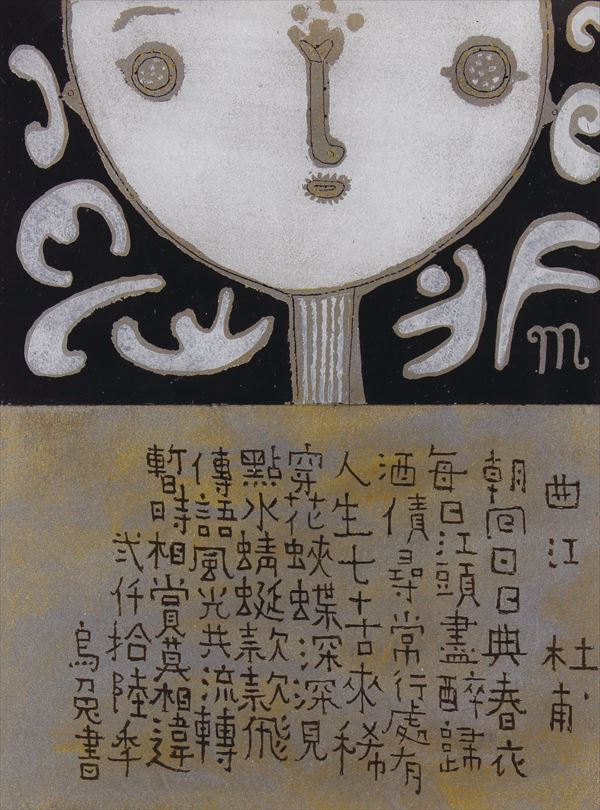 m
曲江 杜甫
朝回日日典春衣
每日江頭盡醉歸
酒債尋常行處有
人生七十古來稀
穿花蛺蝶深深見
點水蜻蜓款款飛
傳語風光共流轉
暫時相賞莫相違
弍仟拾陸秊
烏兔書